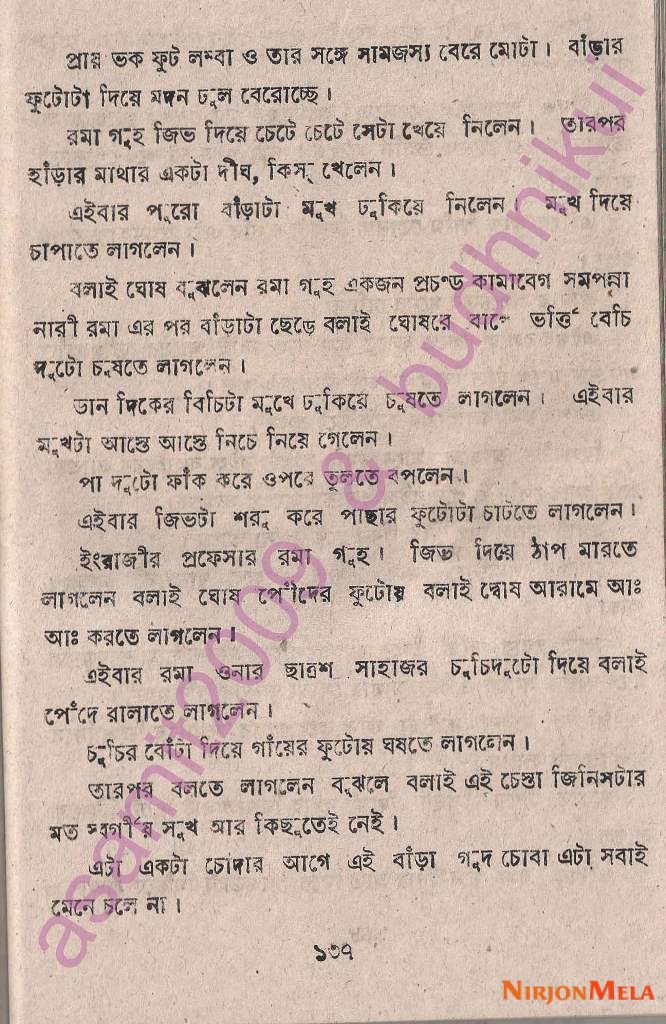 প্রায় ভক ফুট লম্বা ও তার সঙ্গে সামজস্য বেরে মোটা। বাঁড়ার
ফুটোটা দিয়ে মদন ঢ়ল বেরোচ্ছে।
রমা গুহ জিভ দিয়ে চেটে চেটে সেটা খেয়ে নিলেন। তারপর
হাঁড়ার মাথার একটা দীঘ, কিস্ খেলেন।
এইবার পুরো বাঁড়াটা মুখ ঢুকিয়ে নিলেন। মুখ দিয়ে
চাপাতে লাগলেন।
বলাই ঘোষ বুঝলেন রমা গুহ একজন প্রচণ্ড কামাবেগ সমপন্না
নারী রমা এর পর বাঁড়াটা ছেড়ে বলাই ঘোষরে ভর্ত্তি বেচি
দুটো চুষতে লাগলেন।
ডান দিকের বিচিটা মুখে ঢুকিয়ে চুষতে লাগলেন। এইবার
মুখটা আস্তে আস্তে নিচে নিয়ে গেলেন।
পা দুটো ফাঁক করে ওপরে তুলতে বপলেন।
এইবার জিভটা শরু করে পাছার ফুটোটা চাটতে লাগলেন।
ইংরাজীর প্রফেসার রমা গুহ। জিভ দিয়ে ঠাপ মারতে
লাগলেন বলাই ঘোষ পোঁদের ফুটোয় বলাই ঘোষ আরামে আঃ
আঃ করতে লাগলেন।
এইবার রমা ওনার ছাত্রশ সাহাজর চুচিদুটো দিয়ে বলাই
পোঁদে রালাতে লাগলেন।
চুচির বোঁটা দিয়ে গাঁয়ের ফুটোয় ঘষতে লাগলেন।
তারপর বলতে লাগলেন বুঝলে বলাই এই চেস্তা জিনিসটার
মত স্বর্গীয় সুখ আর কিছুতেই নেই।
এটা একটা চোদার আগে এই বাঁড়া গুদ চোবা এটা সবাই
মেনে চলে না।
১৩৭
asamif2009 & budhnikui
NIRJONMELA